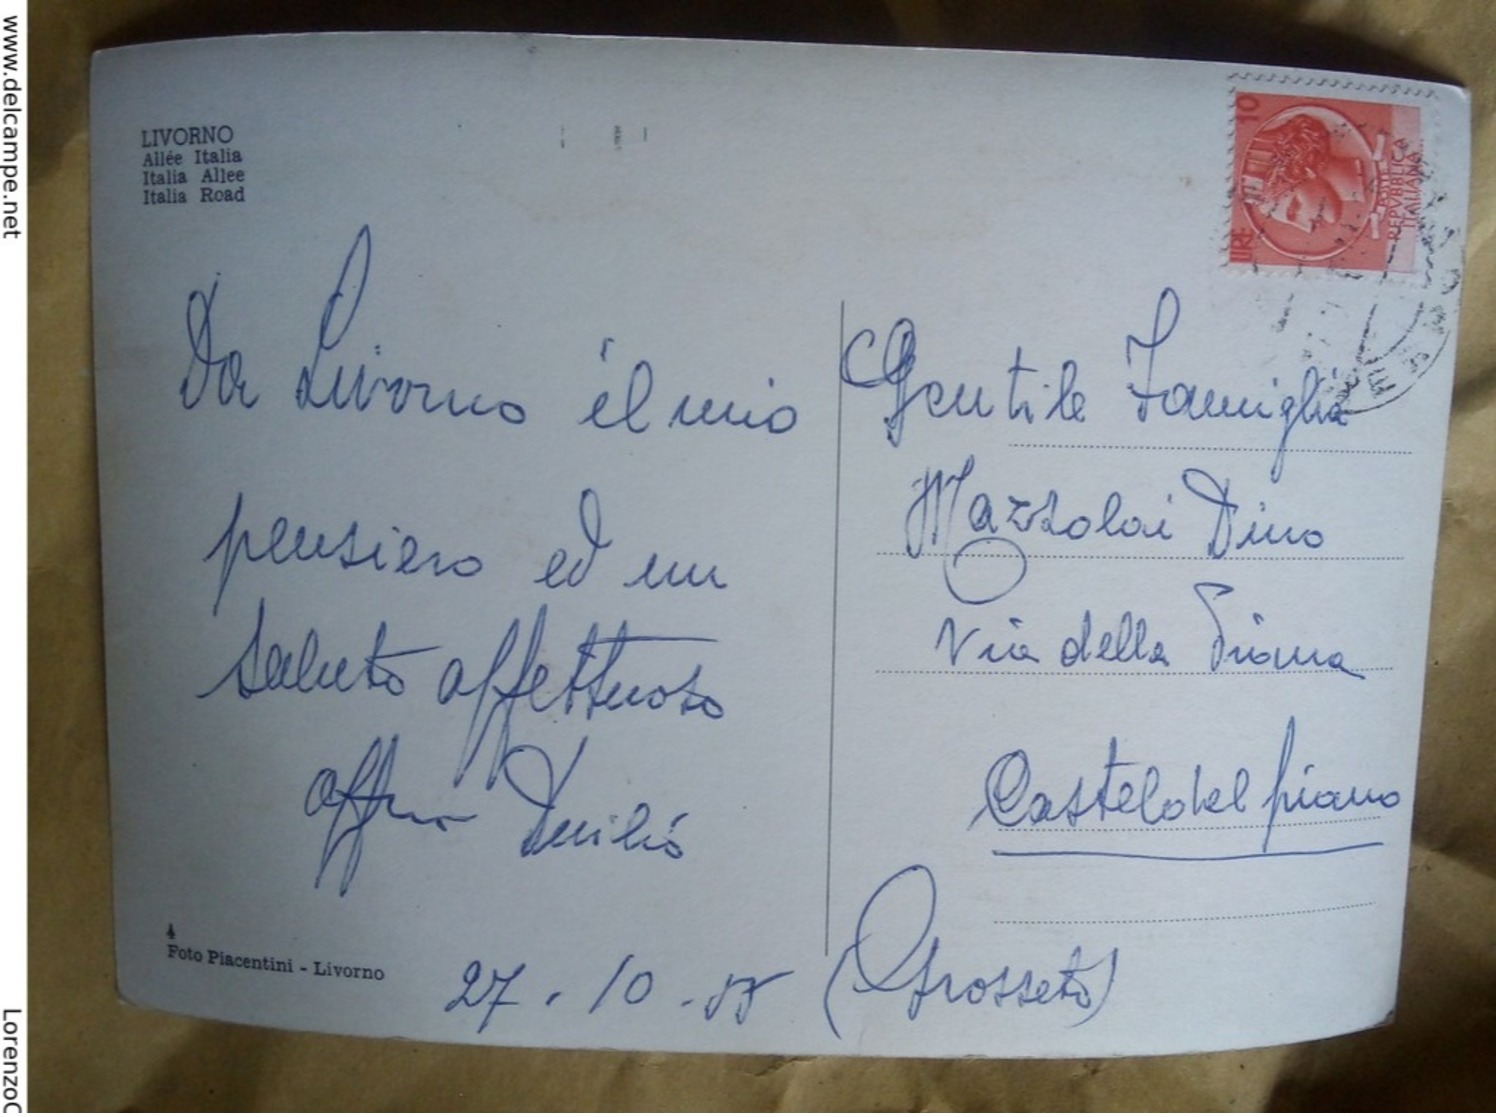 www.delcampe.net
LIVORNO
Allée Italia
Italia Allee
Italia Road
LIRE 10
POSTE
REPVBBLICA
ITALIANA
Da Livorno il mio
pensiero ed un
saluto affettuoso
aff.mo Duilio
4
Foto Piacentini - Livorno
27 . 10 . 
Gentile Famiglia
Mazzolai Dino
Via della Piana
Castel del piano
(Grosseto)
LorenzoC